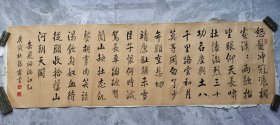 怒髮衝冠憑欄
處瀟瀟雨歇抬
望眼仰天長嘯
壯懷激烈三十
功名塵與土八
千里路雲和月
莫等閒白了少年
頭空悲切
靖康恥猶未雪
臣子恨何時滅
駕長車踏破賀
蘭山缺壯志飢
餐胡虜肉笑
談渴飲匈奴血待
從頭收拾舊山
河朝天闕
岳飛詞滿江紅
庚寅秋